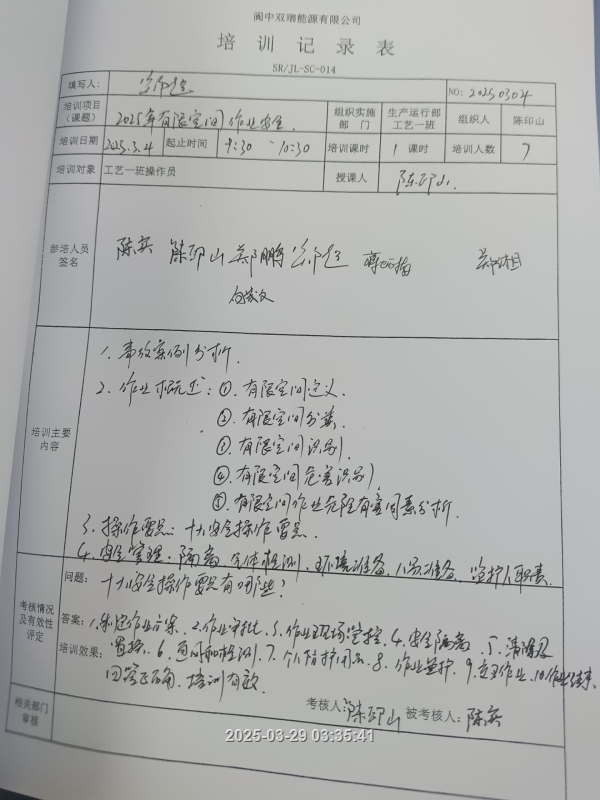 阆中双瑞能源有限公司
培训记录表
SR/JL-SC-014
填写人： NO: 20250304
培训项目（课题） 2025年有限空间作业安全. 组织实施部门 生产运行部工艺一班 组织人 陈印山
培训日期 2025.3.4 起止时间 9:30 ~ 10:30 培训课时 1 课时 培训人数 7
培训对象 工艺一班操作员 授课人 陈印山.
参培人员签名 陈实 陈印山 郑鹏
培训主要内容
1. 事故案例分析.
2. 作业概述: ①. 有限空间定义.
②. 有限空间分类.
③. 有限空间识别.
④. 有限空间危害识别.
⑤. 有限空间作业危险有害因素分析.
3. 操作要点: 十大安全操作要点.
4. 安全管理. 隔离. 气体检测. 环境准备. 人员准备. 监护人职责.
考核情况及有效性评定
问题: 十大安全操作要点有哪些?
答案: 1.制定作业方案. 2.作业审批. 3.作业现场管控. 4.安全隔离. 5.清洗及
培训效果: 置换. 6. 通风和检测. 7. 个人防护用品. 8. 作业监护. 9. 作业. 10.作业结束.
回答正确. 培训有效.
考核人: 陈印山 被考核人: 陈实
相关部门审核
2025-03-29 03:35:41